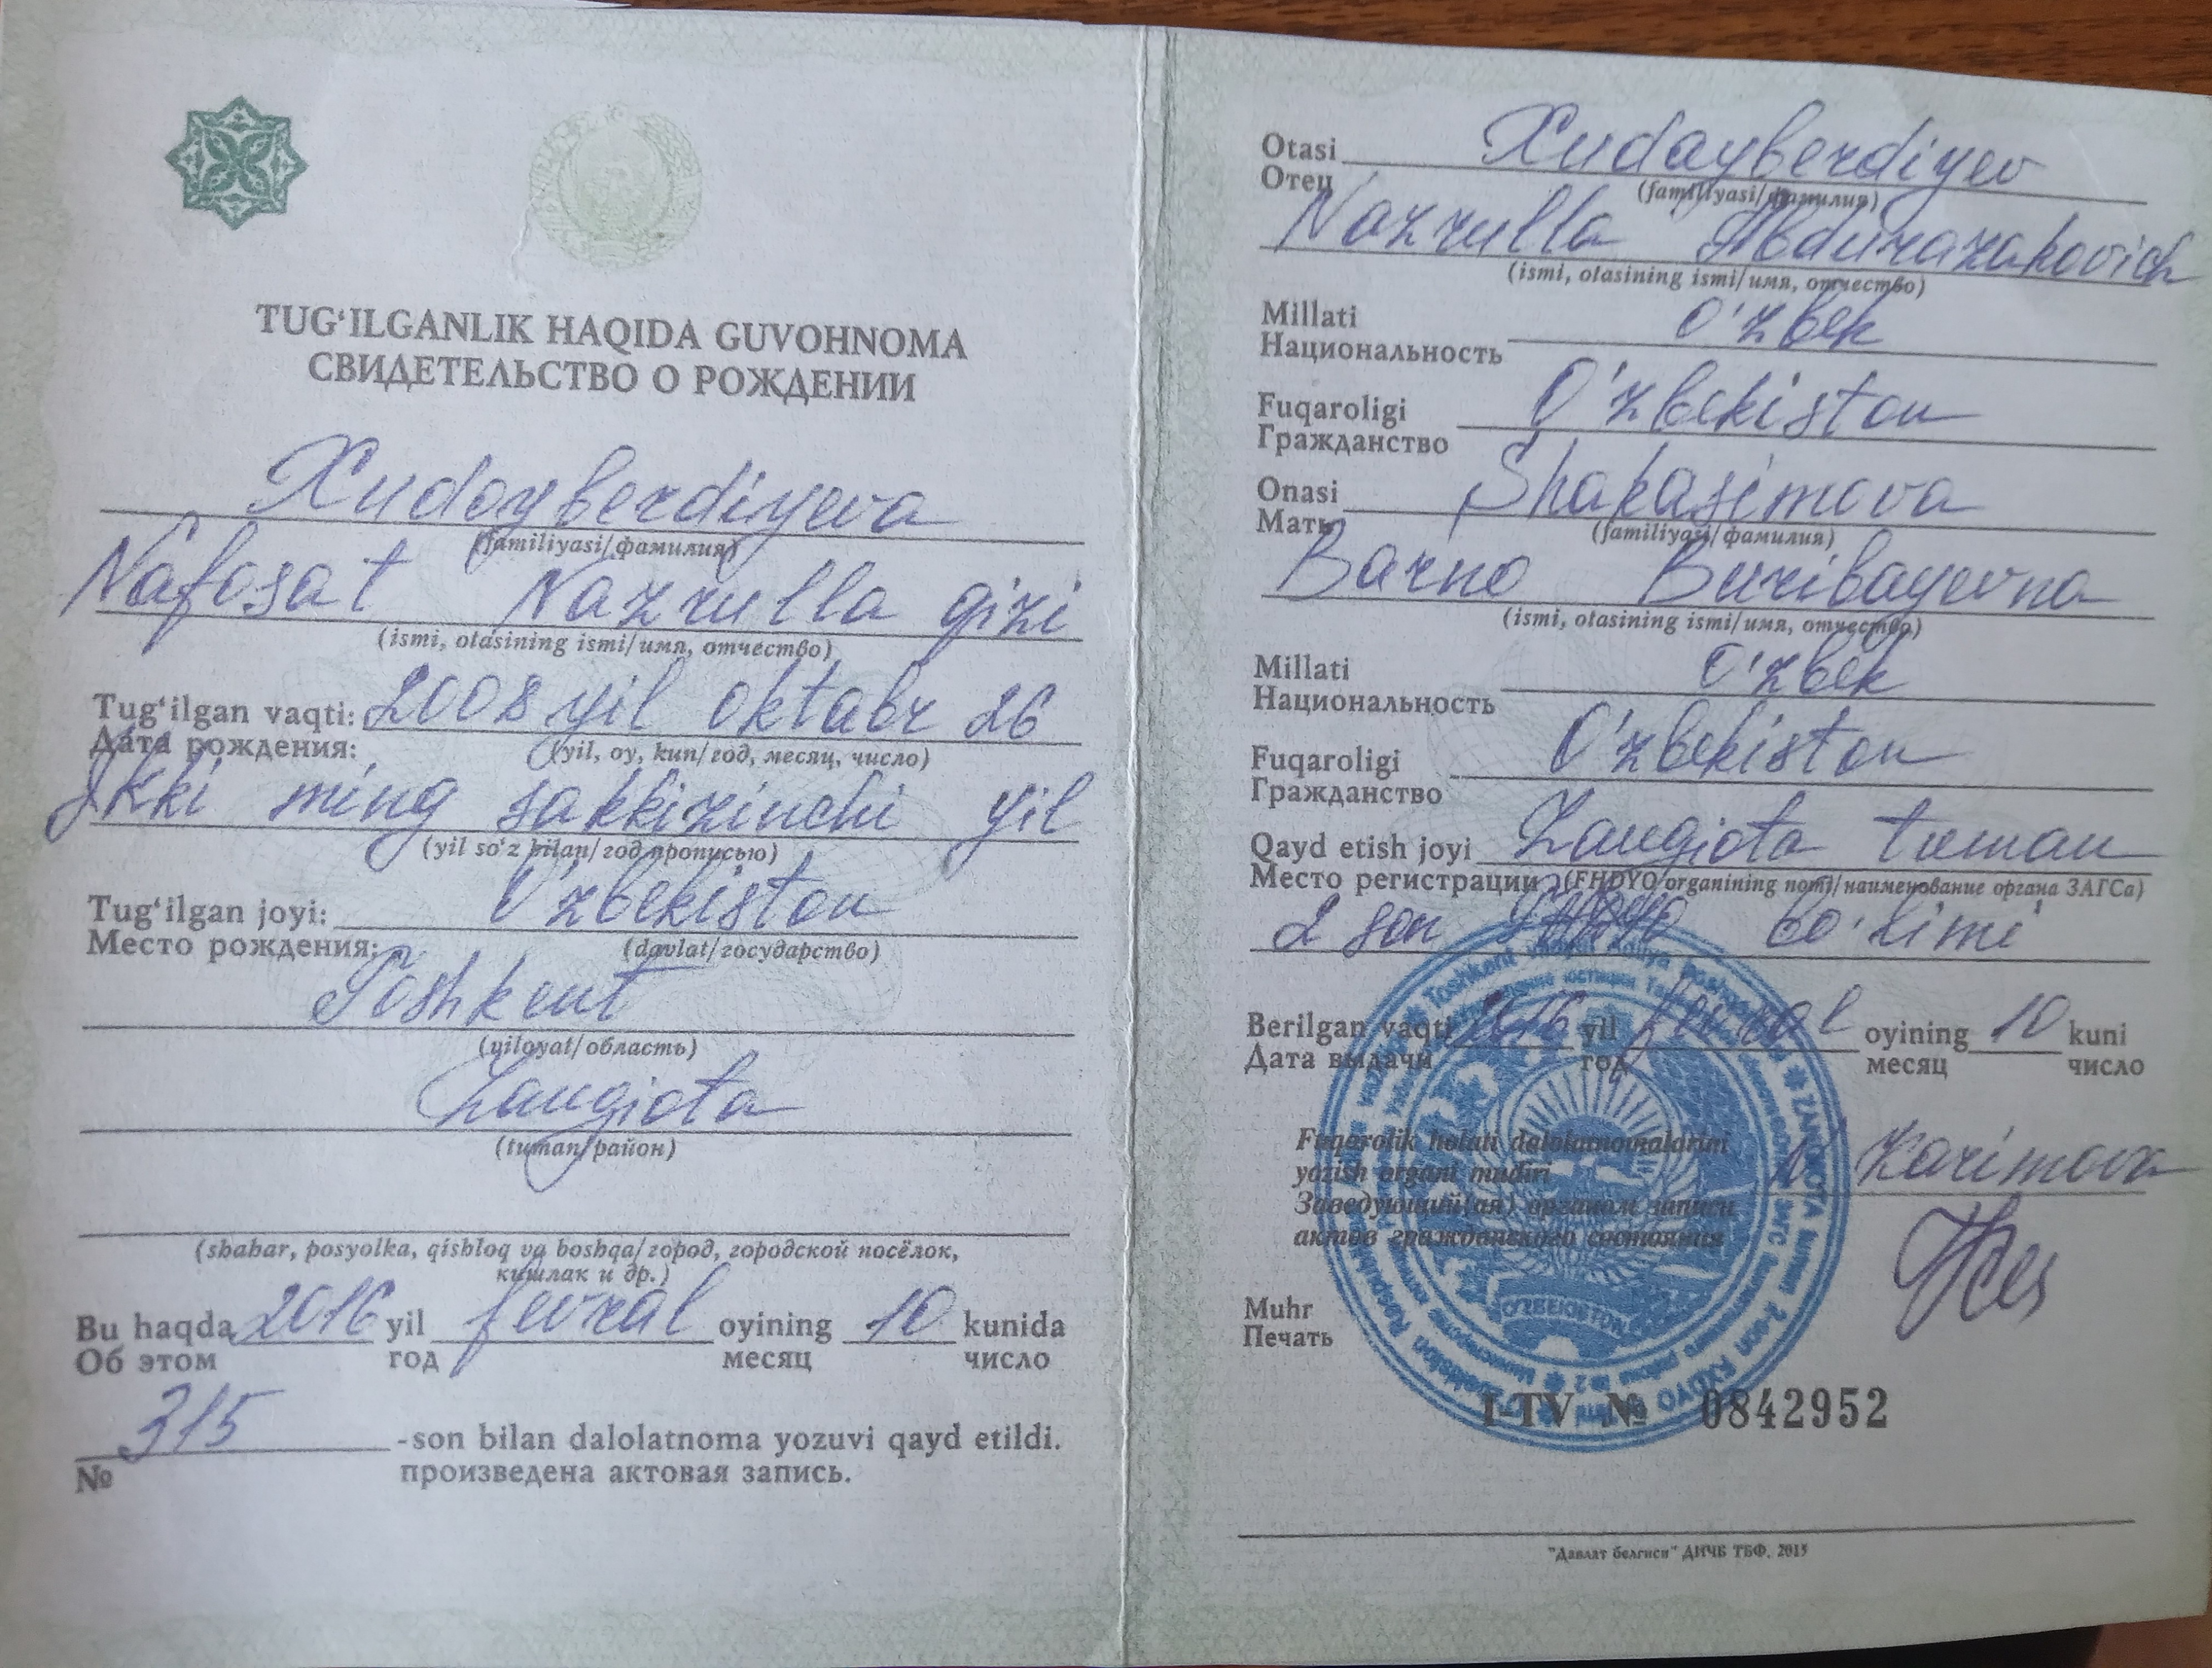 TUG‘ILGANLIK HAQIDA GUVOHNOMA
СВИДЕТЕЛЬСТВО О РОЖДЕНИИ
Xudayberdiyeva
(familiyasi/фамилия)
Nafosat Nazrulla qizi
(ismi, otasining ismi/имя, отчество)
Tug‘ilgan vaqti: 2008 yil oktabr 26
Дата рождения: (yil, oy, kun/год, месяц, число)
Ikki ming sakkizinchi yil
(yil so‘z bilan/год прописью)
Tug‘ilgan joyi: O'zbekiston
Место рождения: (davlat/государство)
Toshkent
(viloyat/область)
Zangiota
(tuman/район)
(shahar, posyolka, qishloq va boshqa/город, городской посёлок,
кишлак и др.)
Bu haqda 2016 yil fevral oyining 10 kunida
Об этом год месяц число
315 -son bilan dalolatnoma yozuvi qayd etildi.
№ произведена актовая запись.
Otasi Xudayberdiyev
Отец (familiyasi/фамилия)
Nazrulla Abdurazakovich
(ismi, otasining ismi/имя, отчество)
Millati o'zbek
Национальность
Fuqaroligi O'zbekiston
Гражданство
Onasi Shakasimova
Мать (familiyasi/фамилия)
Barno Buribayevna
(ismi, otasining ismi/имя, отчество)
Millati o'zbek
Национальность
Fuqaroligi O'zbekiston
Гражданство
Qayd etish joyi Zangiota tuman
Место регистрации (FHDYO organining nomi/наименование органа ЗАГСа)
2 son bo'limi
Berilgan vaqti 2016 yil fevral oyining 10 kuni
Дата выдачи год месяц число
Fuqarolik holati dalolatnomalarini
yozish organi mudiri N Karimova
Заведующий(ая) органом записи
актов гражданского состояния
O'ZBEKISTON
Muhr
Печать
I-TV № 0842952
"Давлат белгиси" ДИЧБ ТБФ, 2015